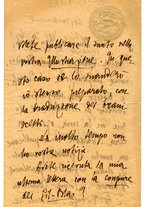 volete pubblicare il sunto nella
vostra Illustrazione. In que
sto caso ve lo manderò
io stesso preparato, con
la traduzione dei brani
scelti.
Da molto tempo non
ho vostre notizie
Avete ricevuta la mia
ultima lettera con la
del Gil-Blas?